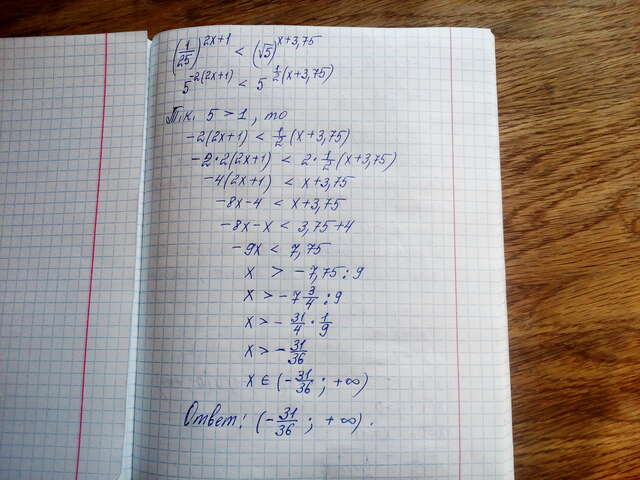 (1/25)^(2x+1) < (√5)^(x+3,75)
5^(-2(2x+1)) < 5^(1/2(x+3,75))
Т.к. 5 > 1, то
-2(2x+1) < 1/2(x+3,75)
-2·2(2x+1) < 2·1/2(x+3,75)
-4(2x+1) < x+3,75
-8x-4 < x+3,75
-8x-x < 3,75+4
-9x < 7,75
x > -7,75:9
x > -7 3/4 :9
x > - 31/4 · 1/9
x > - 31/36
x ∈ (- 31/36 ; +∞)
Ответ: (- 31/36 ; +∞).